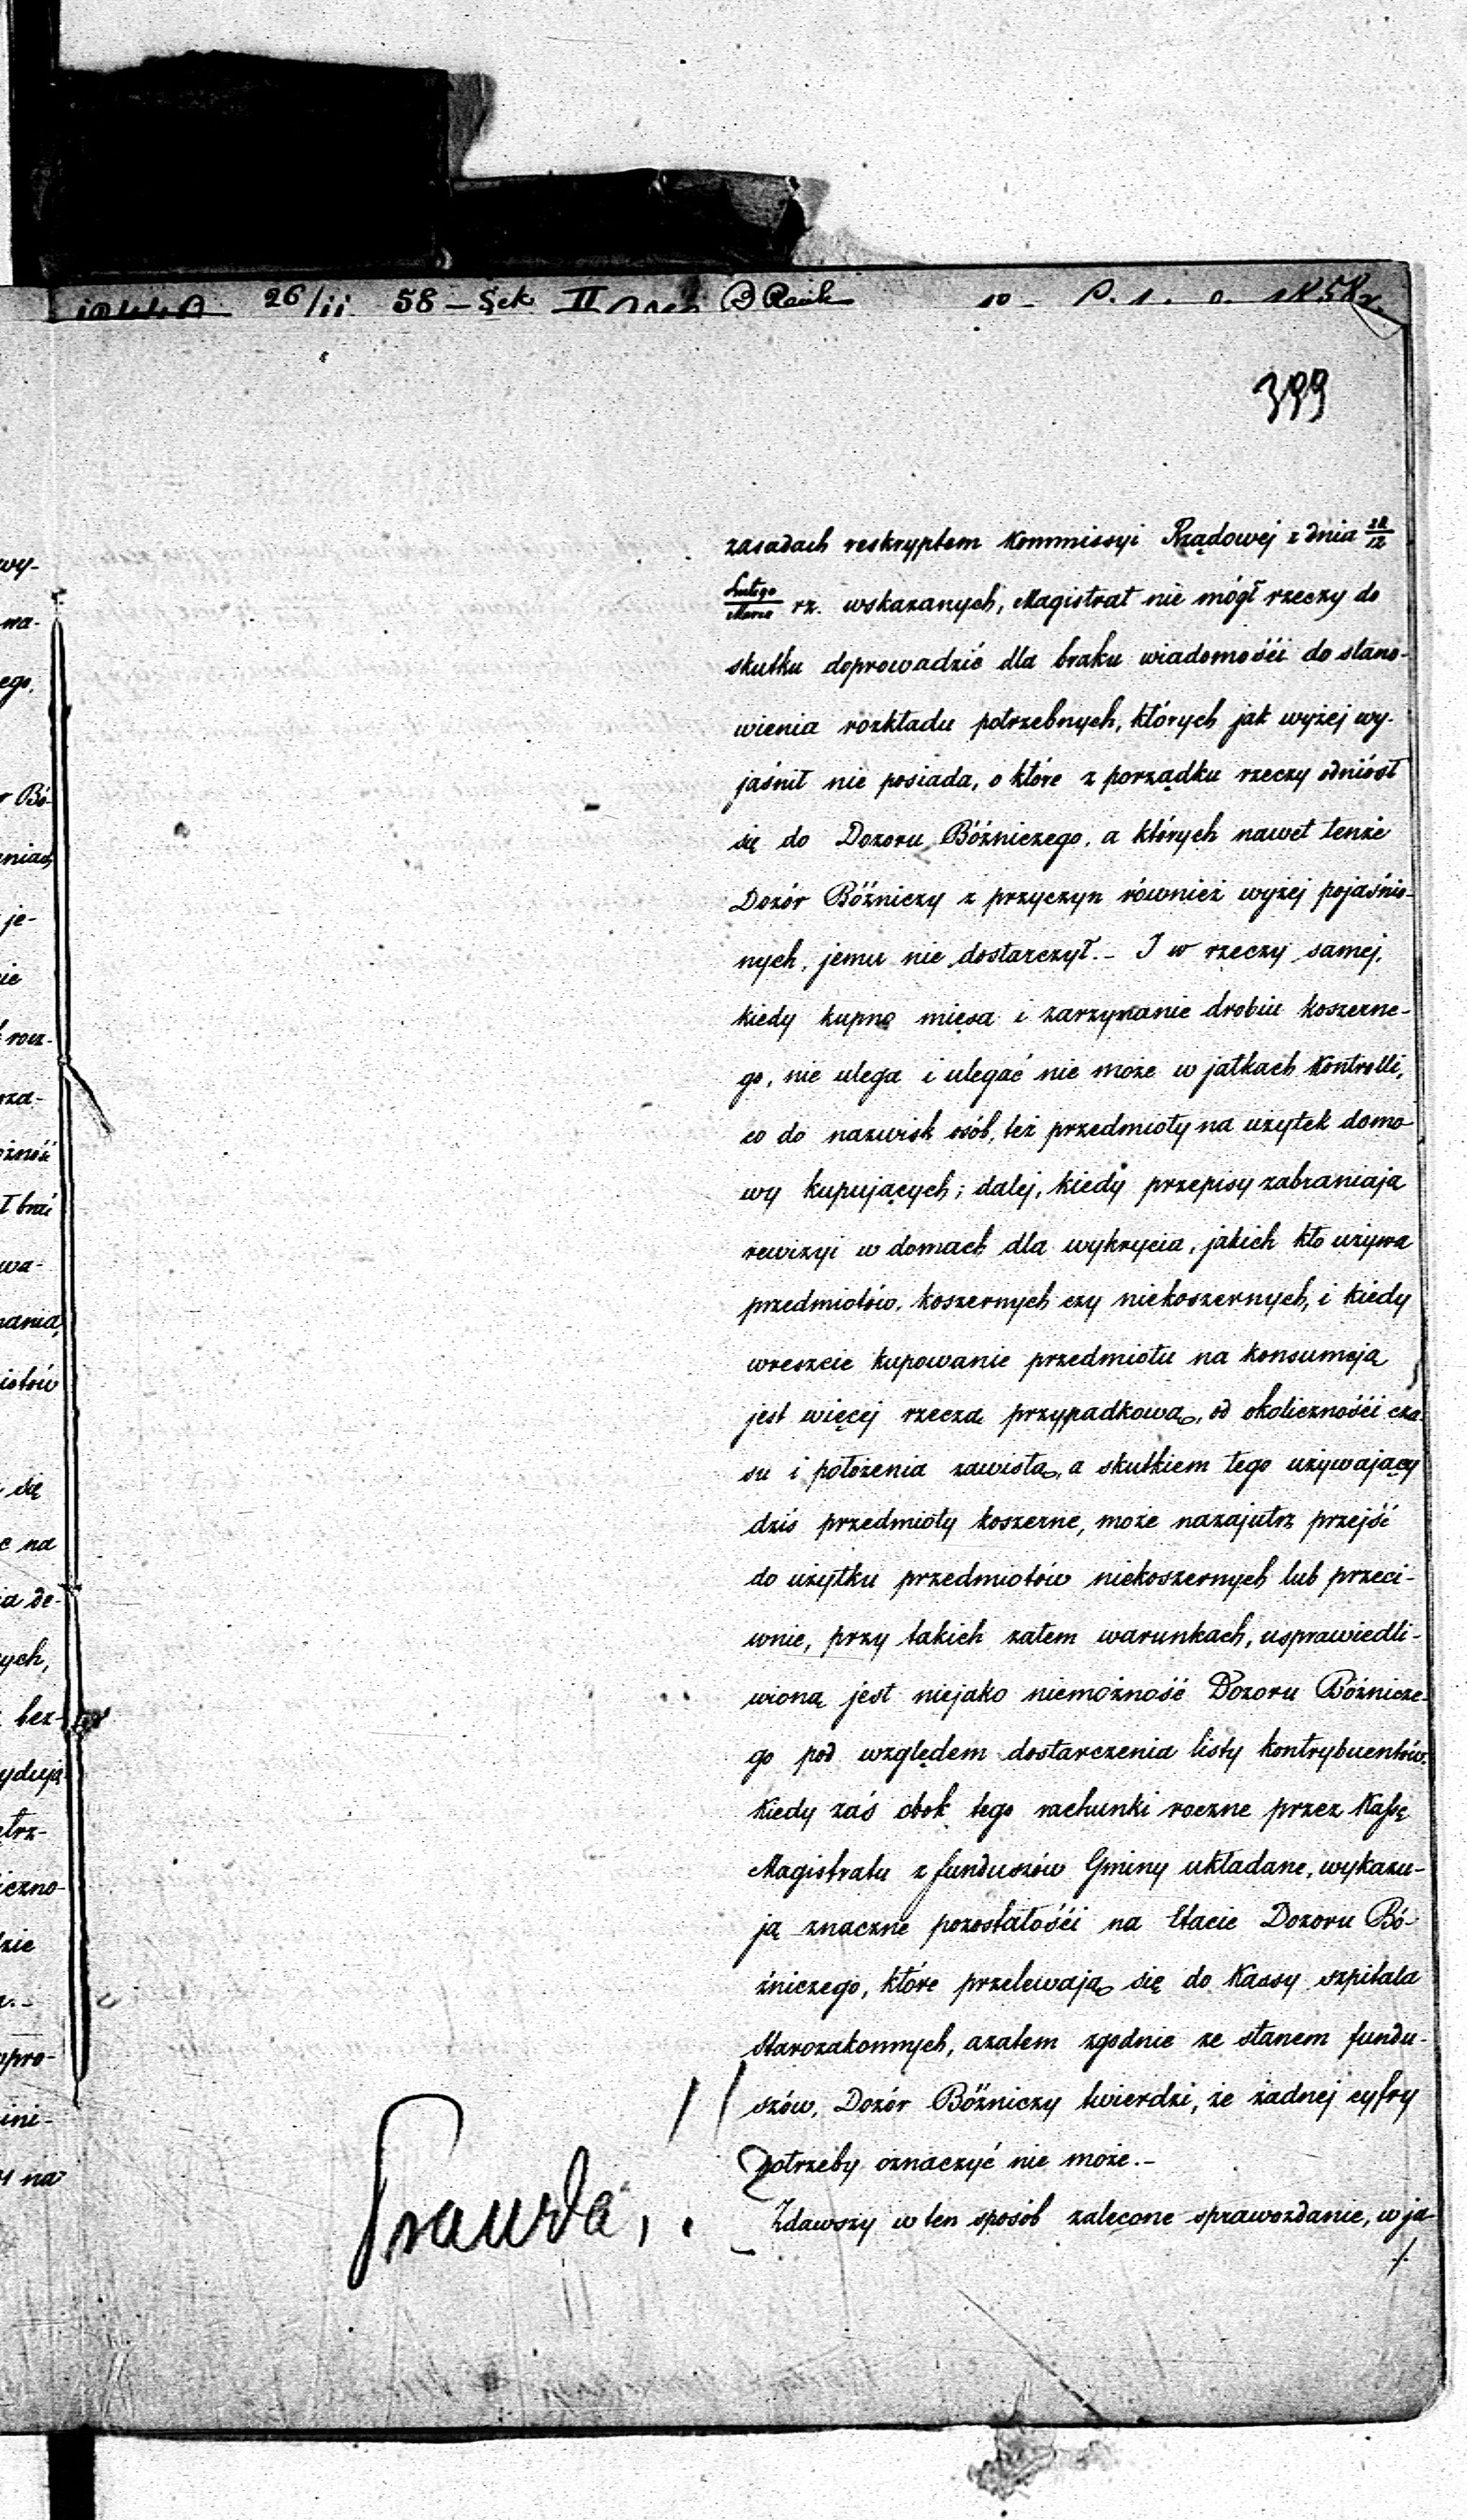 26/11 58 - Sek II
399
zasadach reskryptem Kommissyi Rządowej z dnia 28/12
Lutego/Marca rz. wskazanych, Magistrat nie mógł rzeczy do
skutku doprowadzić dla braku wiadomośći do stano-
wienia rozkładu potrzebnych, których jak wyżej wy-
jaśnił nie posiada, o które z porządku rzeczy odniósł
się do Dozoru Bóżniczego, a których nawet tenże
Dozór Bóżniczy z przyczyn również wyżej pojaśnio-
nych, jemu nie dostarczył.- I w rzeczy samej,
kiedy kupno mięsa i zarzynanie drobiu koszerne-
go, nie ulega i ulegać nie może w jatkach Kontrolli,
co do nazwisk osób, też przedmioty na użytek domo-
wy kupujących; dalej, kiedy przepisy zabraniają
rewizyi w domach dla wykrycia, jakich kto używa
przedmiotów, koszernych czy niekoszernych, i kiedy
wreszcie kupowanie przedmiotu na konsumcją
jest więcej rzeczą przypadkową, od okolicznośći cza-
su i położenia zawisłą, a skutkiem tego używający
dziś przedmioty koszerne, może nazajutrz przejść
do użytku przedmiotów niekoszernych lub przeci-
wnie, przy takich zatem warunkach, usprawiedli-
wioną jest niejako niemożność Dozoru Bóżnicze-
go pod względem dostarczenia listy kontrybuentów.
Kiedy zaś obok tego rachunki roczne przez Kassę
Magistratu z funduszów Gminy układane, wykazu-
ją znaczne pozostałośći na Etacie Dozoru Bó-
żniczego, które przelewają się do Kassy szpitala
Starozakonnych, azatem zgodnie ze stanem fundu-
szów, Dozór Bóżniczy twierdzi, że żadnej cyfry
potrzeby oznaczyć nie może.-
Prawda,
Zdawszy w ten sposób zalecone sprawozdanie, w ja-